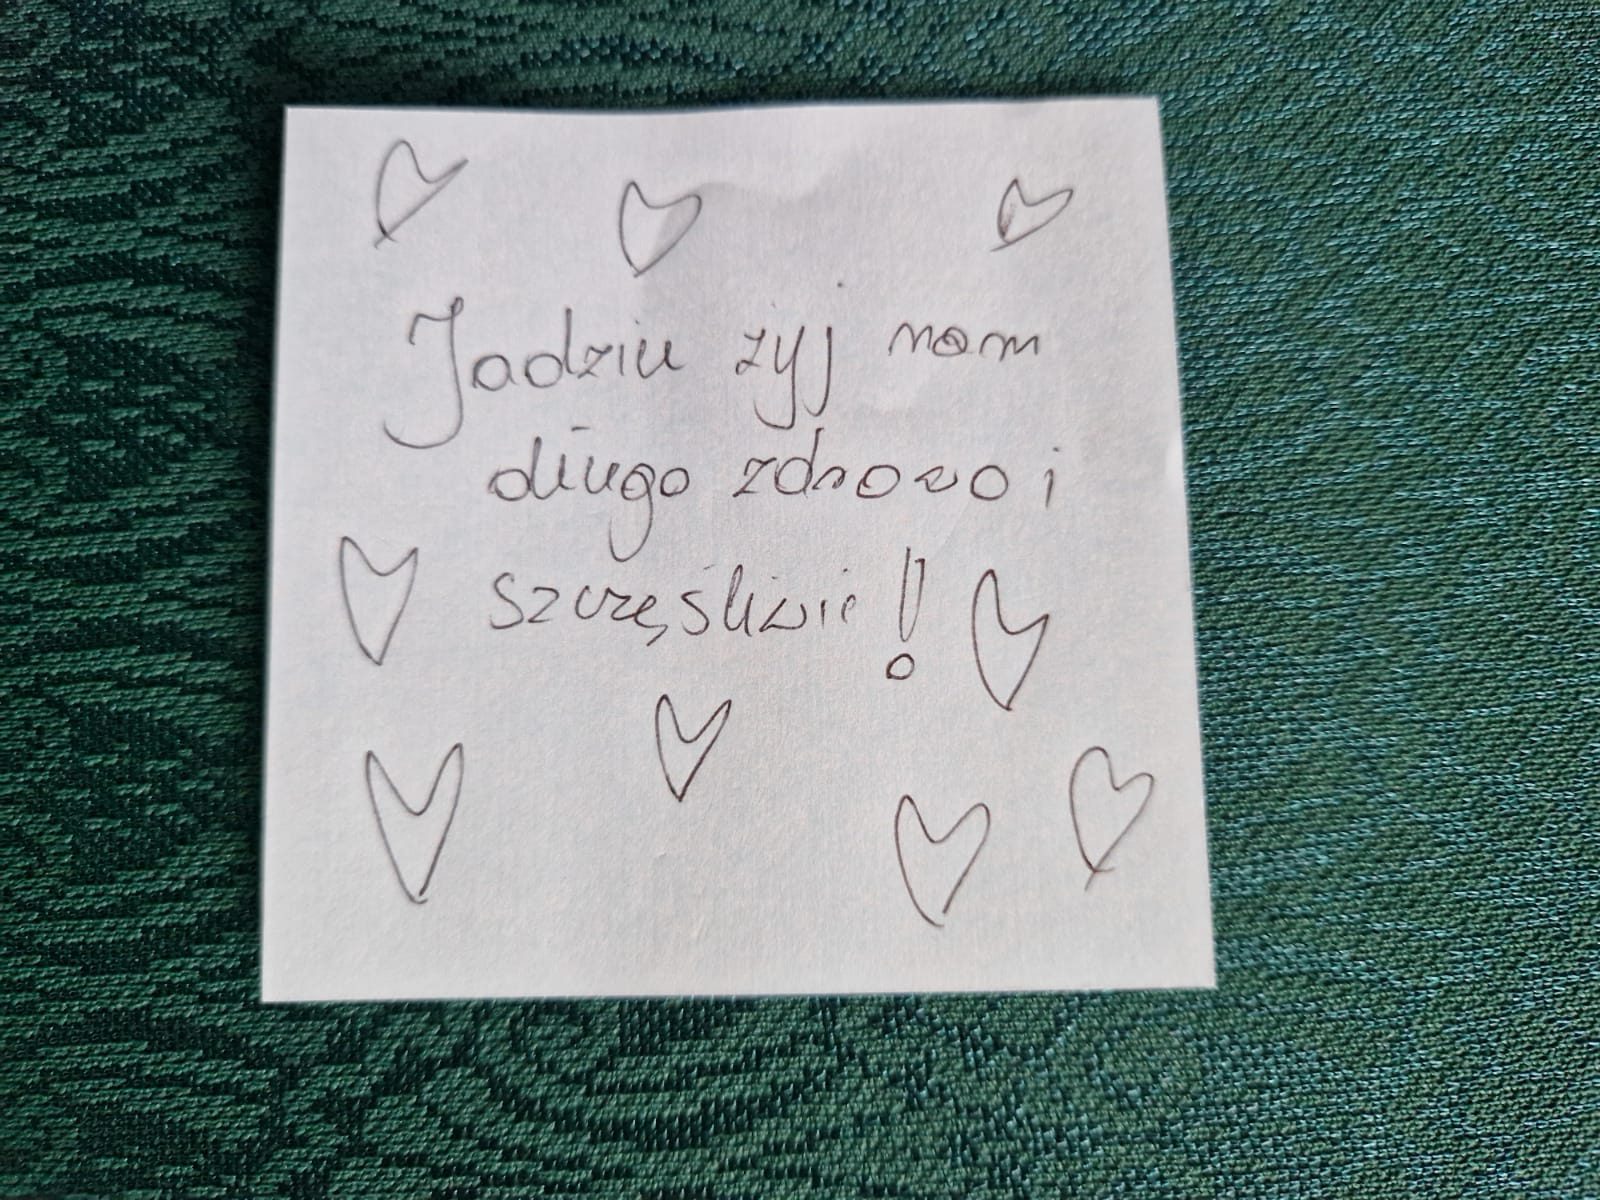 Jadziu żyj nam
długo zdrowo i
szczęśliwie!